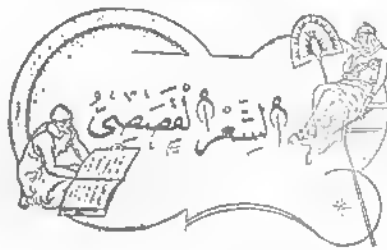 الشِّعْرُ القَصَصِىُّ